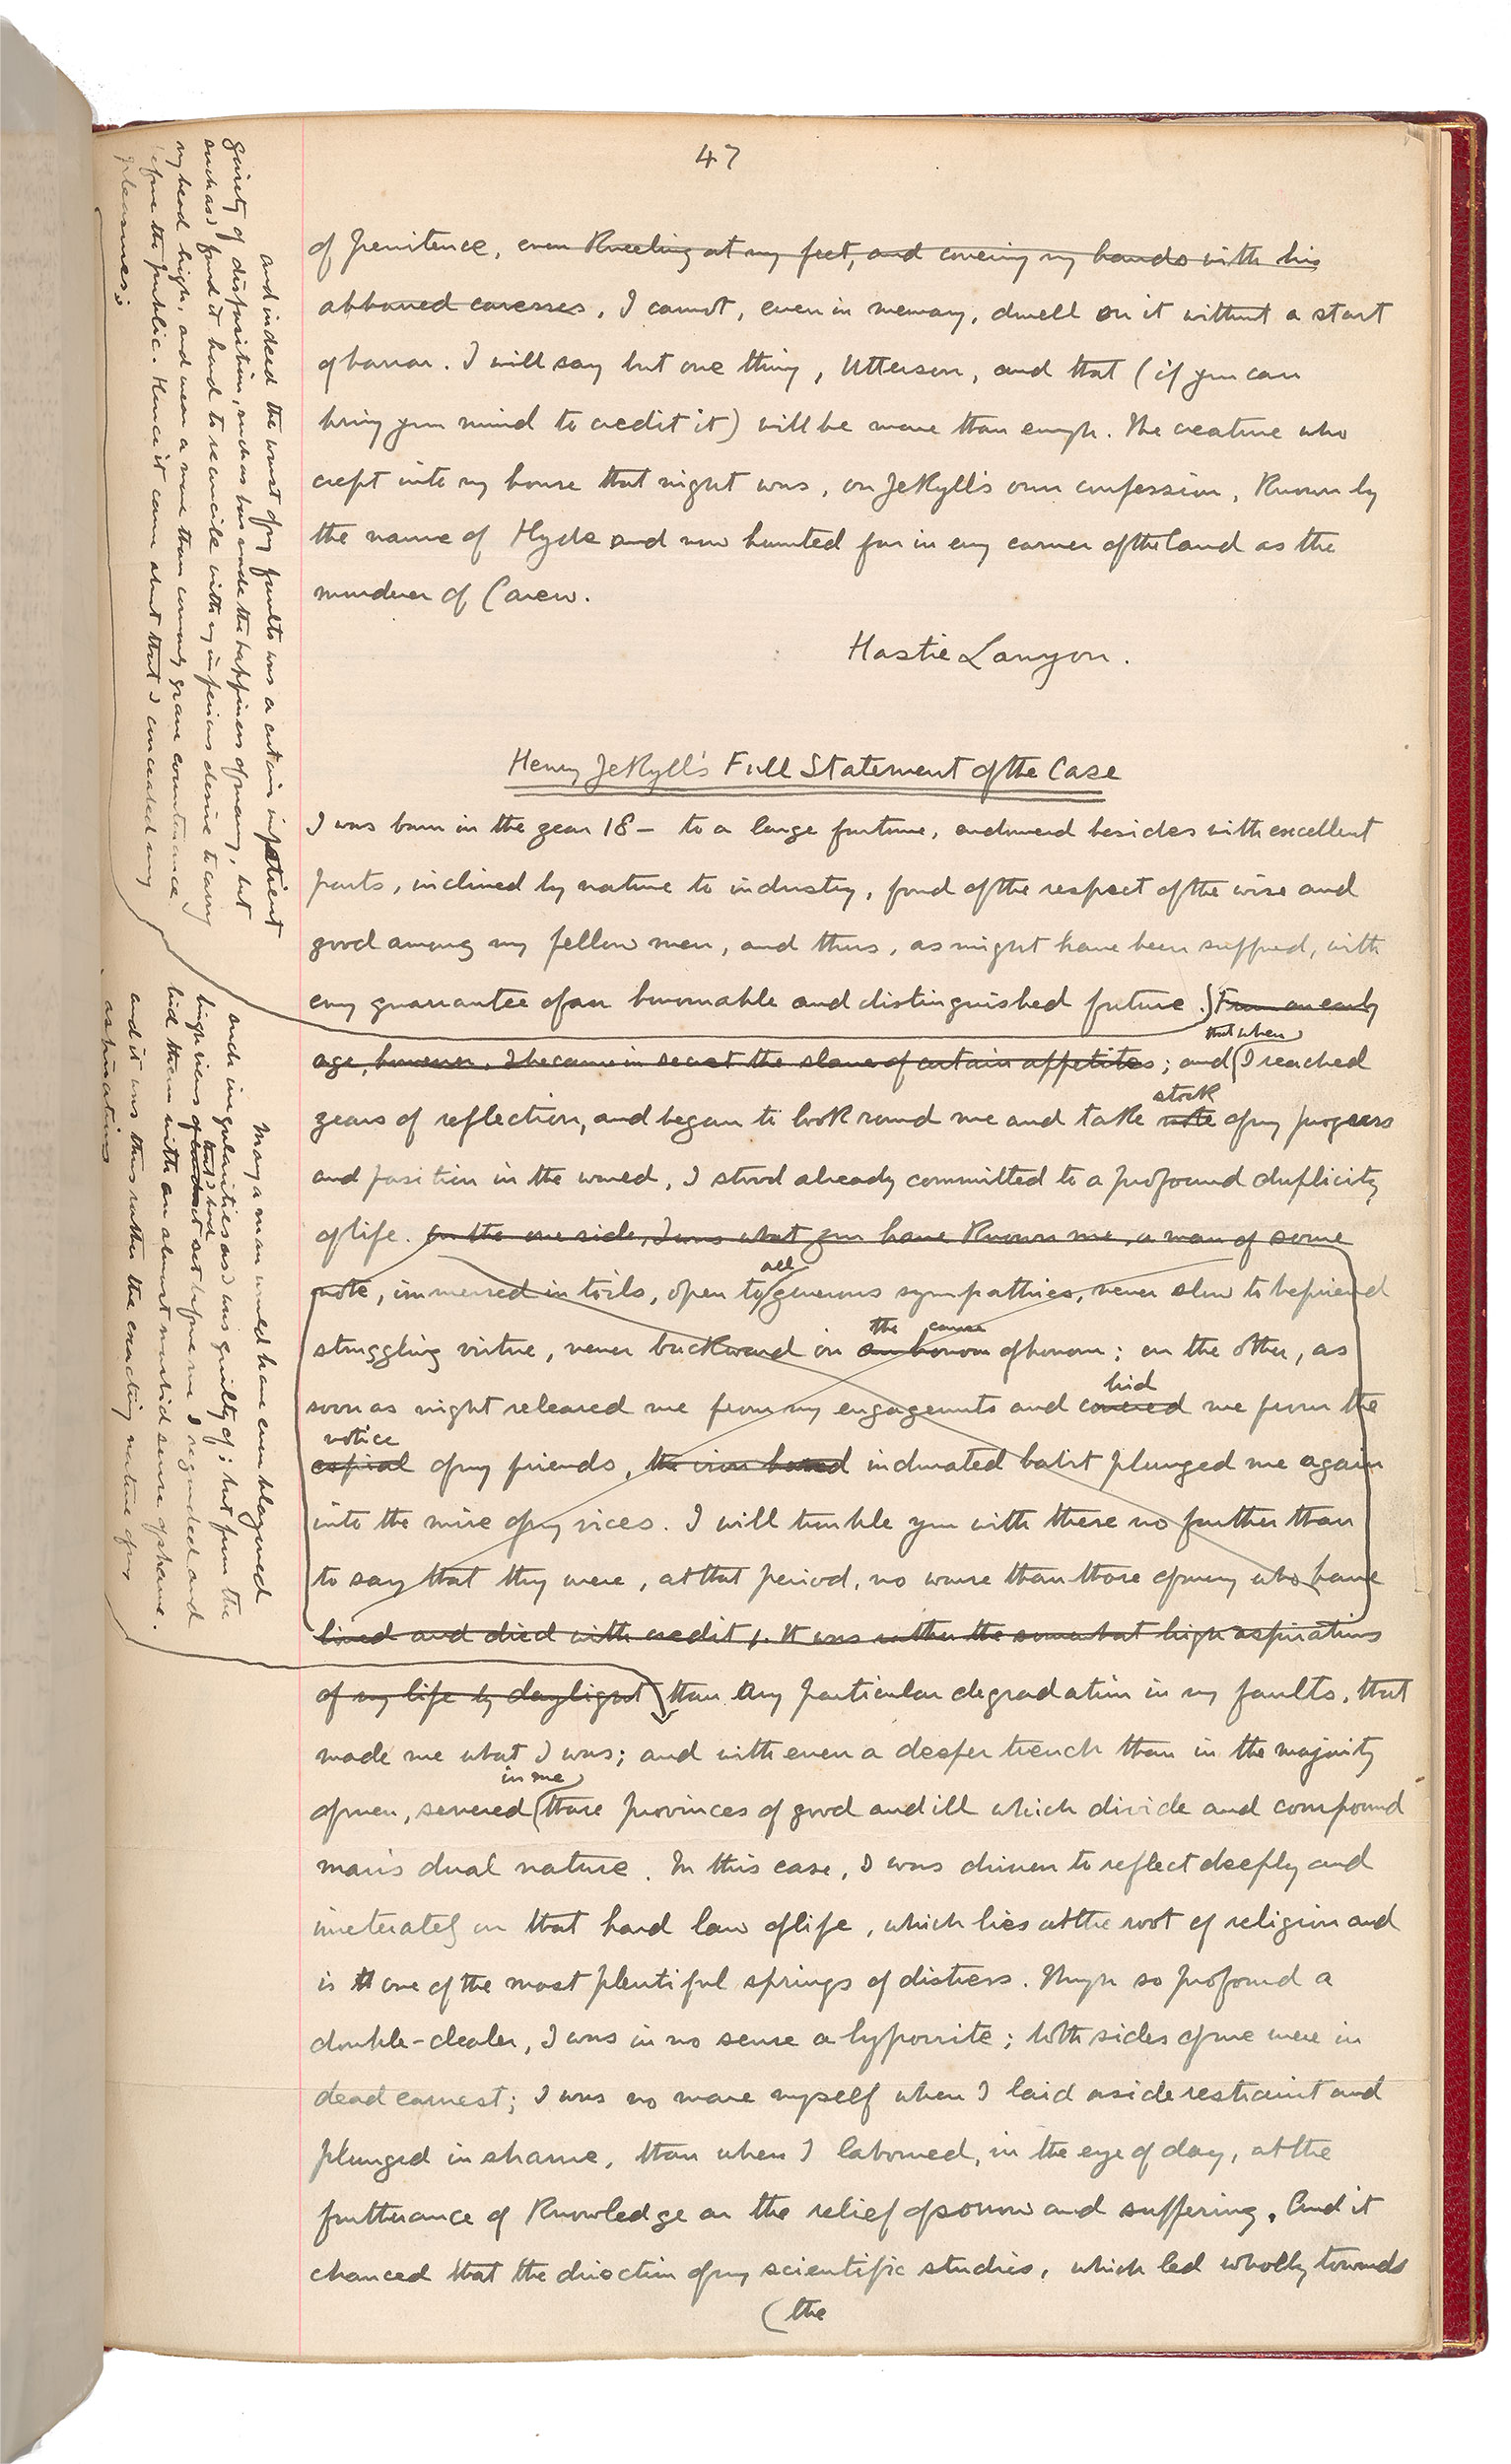 47
of penitence, even kneeling at my feet, and covering my hands with his
abhorred caresses, I cannot, even in memory, dwell on it without a start
of horror. I will say but one thing, Utterson, and that (if you can
bring your mind to credit it) will be more than enough. The creature who
crept into my house that night was, on Jekyll's own confession, known by
the name of Hyde and now hunted for in every corner of the land as the
murderer of Carew.
Hastie Lanyon.
Henry Jekyll's Full Statement of the Case
I was born in the year 18— to a large fortune, endowed besides with excellent
parts, inclined by nature to industry, fond of the respect of the wise and
good among my fellow men, and thus, as might have been supposed, with
every guarantee of an honourable and distinguished future. From an early
age, however, I became in secret the slave of certain appetites; and
that when
I reached
years of reflection, and began to look round me and take note of my progress
stock
and position in the world, I stood already committed to a profound duplicity
of life. On the one side, I was what you have known me, a man of some
note, immersed in toils, open to generous sympathies, never slow to befriend
all
struggling virtue, never backward in an honour of honour; on the other, as
the cause
soon as night released me from my engagements and covered me from the
hid
espial of my friends, the iron hand indurated habit plunged me again
notice
into the mire of my vices. I will trouble you with these no further than
to say that they were, at that period, no worse than those of many who have
lived and died with credit. It was rather the somewhat high aspirations
of my life by daylight than any particular degradation in my faults, that
made me what I was; and with even a deeper trench than in the majority
of men, severed those provinces of good and ill which divide and compound
in me
man's dual nature. In this case, I was driven to reflect deeply and
inveterately on that hard law of life, which lies at the root of religion and
is one of the most plentiful springs of distress. Though so profound a
double-dealer, I was in no sense a hypocrite; both sides of me were in
dead earnest; I was no more myself when I laid aside restraint and
plunged in shame, than when I laboured, in the eye of day, at the
furtherance of knowledge or the relief of sorrow and suffering. And it
chanced that the direction of my scientific studies, which led wholly towards
(the
and indeed the worst of my faults was a certain impatient
gaiety of disposition, such as has made the happiness of many, but
such as I found it hard to reconcile with my imperious desire to carry
my head high, and wear a more than commonly grave countenance
before the public. Hence it came about that I concealed my
pleasures;
Many a man would have even blazoned
such irregularities as I was guilty of; but from the
high views of conduct set before me I regarded and
that I had
hid them with an almost morbid sense of shame.
and it was thus rather the exacting nature of my
aspirations